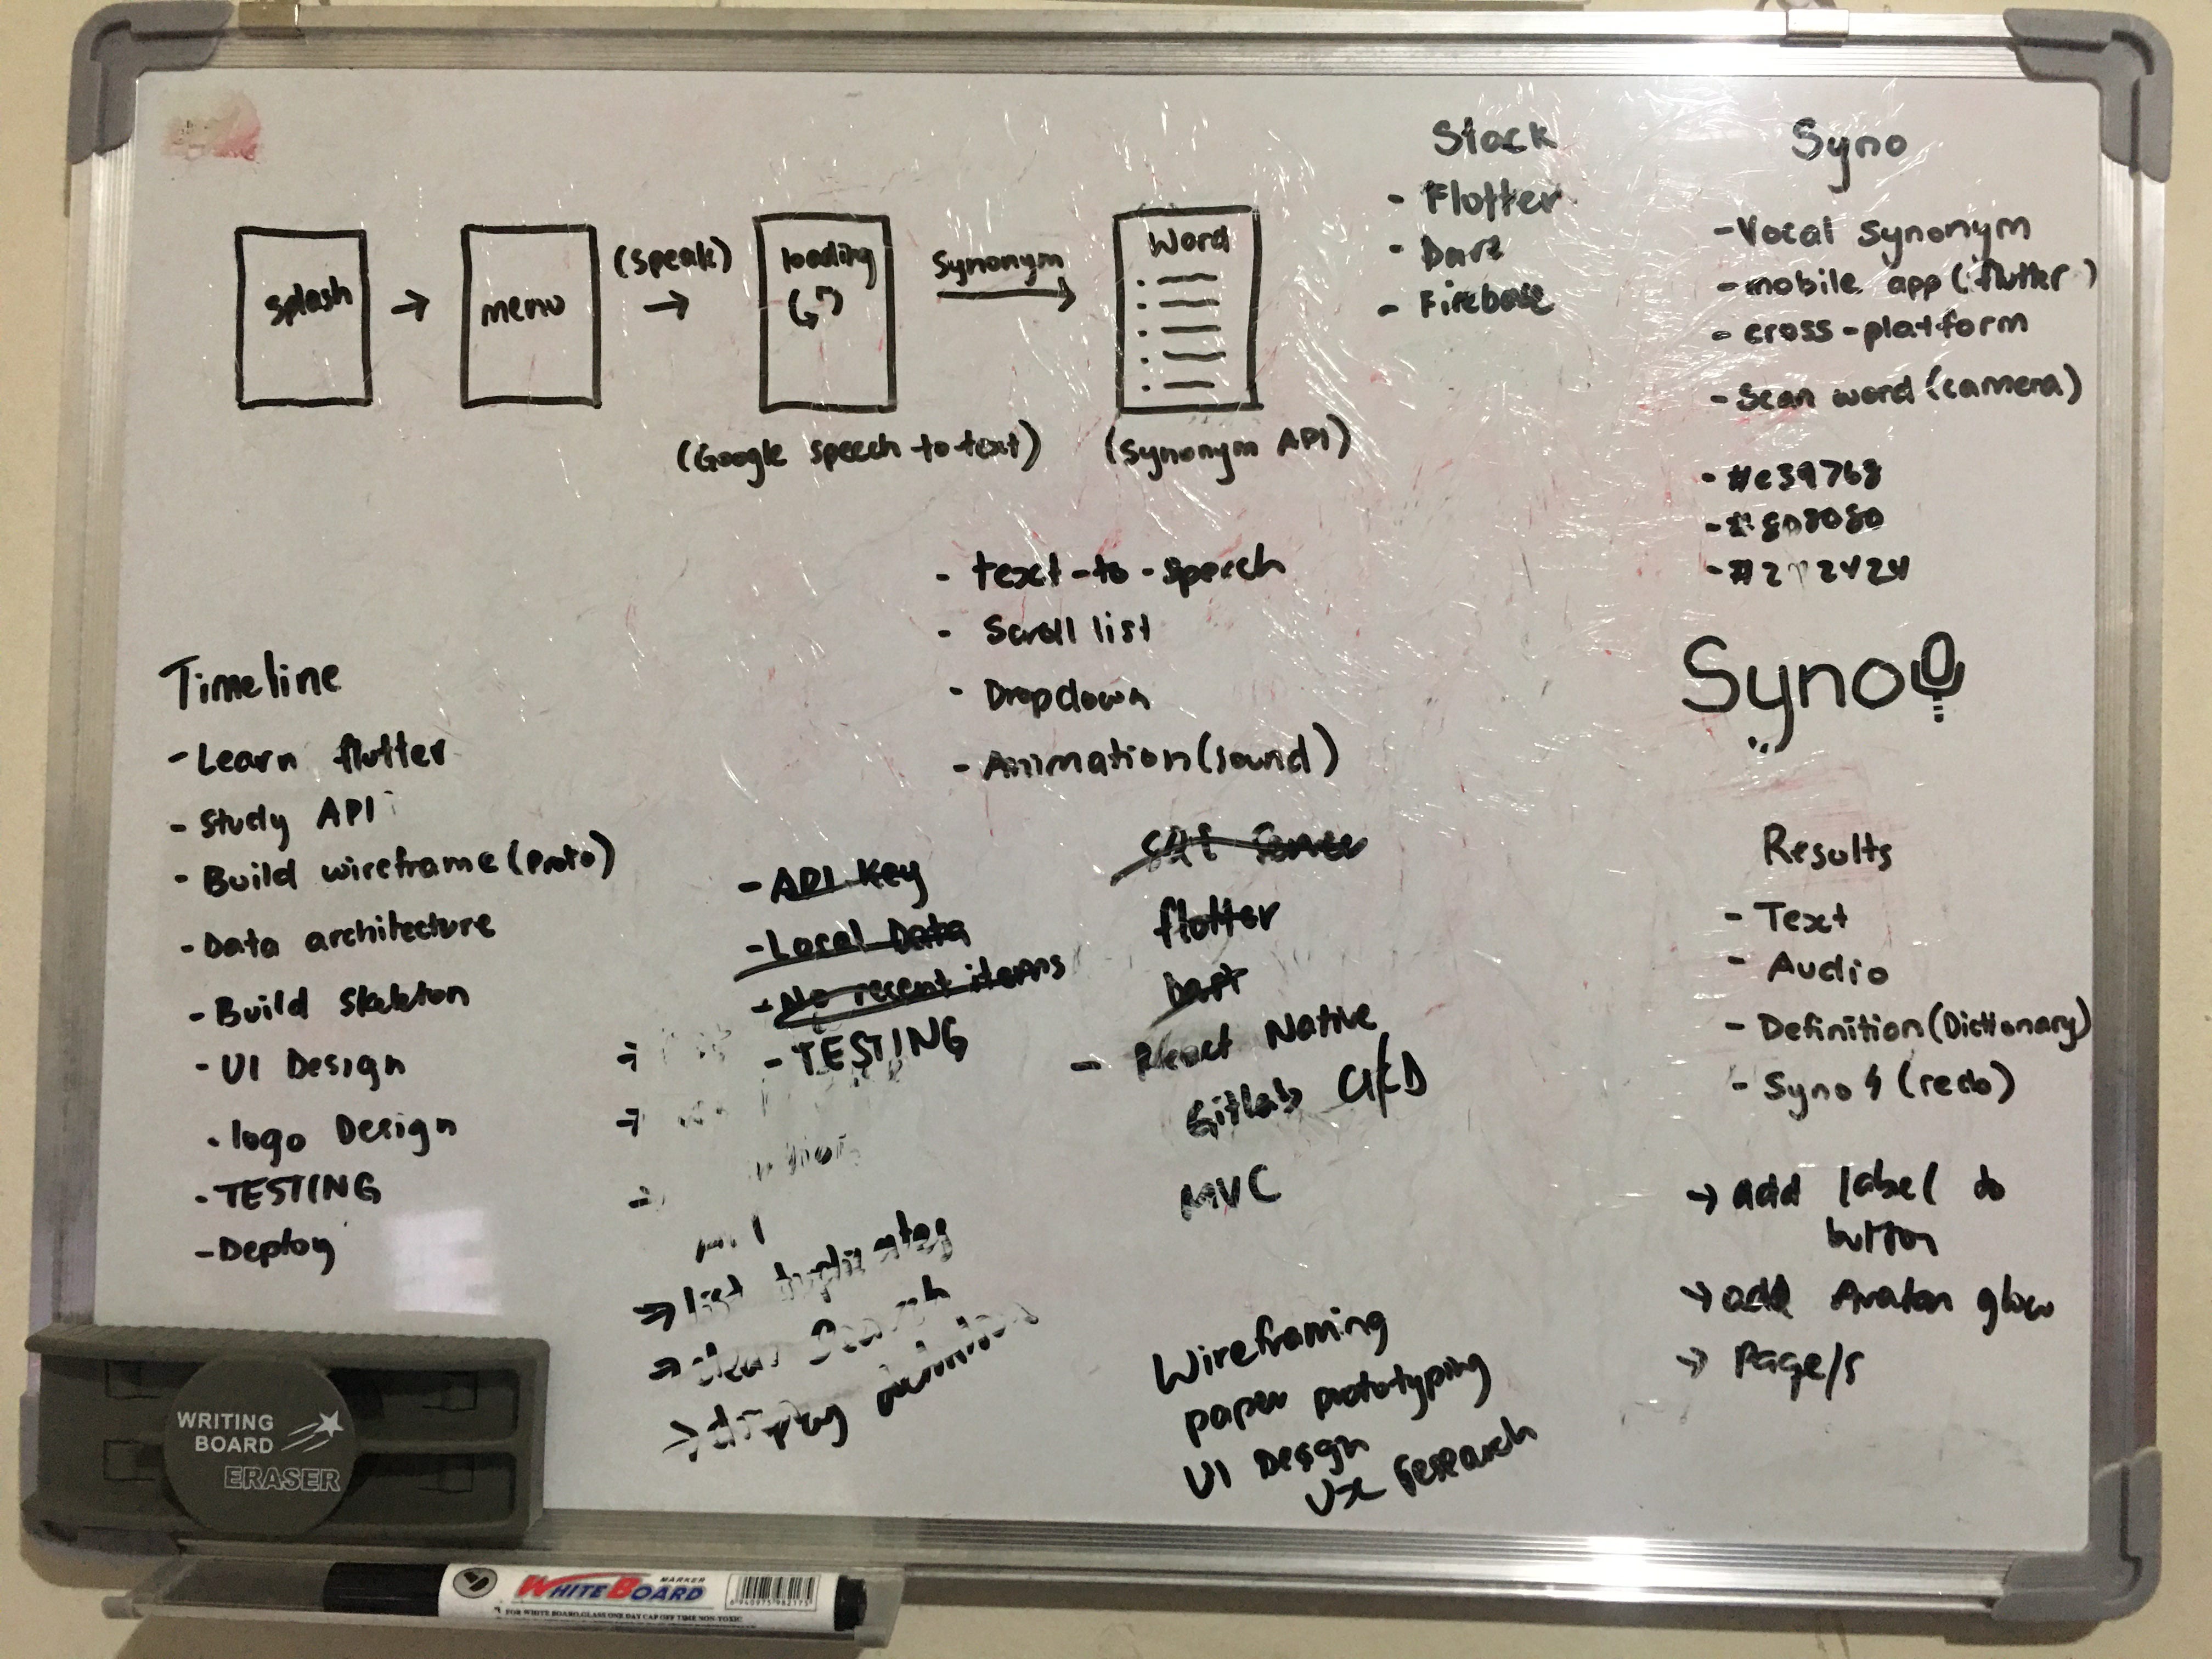 splash
→
menu
(speak)
→
loading
Synonym
Word
(Google speech-to-text)
(Synonym API)
Stack
- Flutter
- Dart
- Firebase
Syno
- Vocal synonym
- mobile app (flutter)
- cross-platform
- Scan word (camera)
- #e39768
- #808080
- text-to-speech
- Scroll list
- Dropdown
- Animation (sound)
Syno
Timeline
- Learn flutter
- Study API
- Build wireframe (proto)
- Data architecture
- Build skeleton
- UI Design
- logo Design
- TESTING
- Deploy
- API Key
- Local Data
- No recent items
- TESTING
→ list duplicates
→ clear Search
→ display
flutter
Dart
- React Native
Gitlab CI/CD
MVC
Wireframing
paper prototyping
UI Design
Ux Research
Results
- Text
- Audio
- Definition (Dictionary)
- Syno (redo)
→ add label to
button
→ add Avatar glow
→ Page/s
WRITING
BOARD
ERASER
WHITEBOARD
MARKER
FOR WHITE BOARD.GLASS ONE DAY CAP OFF TIME NON-TOXIC
6940975982175